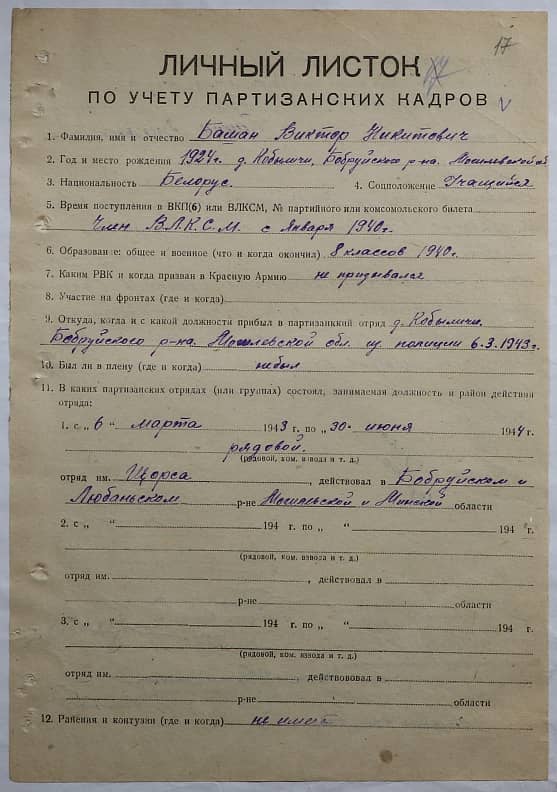 17
ЛИЧНЫЙ ЛИСТОК
ПО УЧЕТУ ПАРТИЗАНСКИХ КАДРОВ
1. Фамилия, имя и отчество Баман Виктор Никитович
2. Год и место рождения 1924г. д. Кобыличи, Бобруйского р-на. Могилевской об
3. Национальность Белорус. 4. Соцположение Учащийся
5. Время поступления в ВКП(б) или ВЛКСМ, № партийного или комсомольского билета
Член В.Л.К.С.М. с Января 1940г.
6. Образование: общее и военное (что и когда окончил) 8 классов 1940г.
7. Каким РВК и когда призван в Красную Армию не призывался
8. Участие на фронтах (где и когда)
9. Откуда, когда и с какой должности прибыл в партизанкий отряд д. Кобыличи.
Бобруйского р-на. Могилевской обл. из полиции 6.3.1943г.
10. Был ли в плену (где и когда) небыл
11. В каких партизанских отрядах (или группах) состоял, занимаемая должность и район действия
отряда:
1. с „ 6 “ марта 1943 г. по „ 30. “ июня 1944 г.
рядовой.
(рядовой, ком. взвода и т. д.)
отряд им. Щорса , действовал в Бобруйском и
Любаньском р-не Могилевской и Минской области
2. с „ “ 194 г. по „ “ 194 г.
(рядовой, ком. взвода и т. д.)
отряд им. , действовал в
р-не области
3. с „ “ 194 г. по „ “ 194 г.
(рядовой, ком. взвода и т. д.)
отряд им. , действововал в
р-не области
12. Ранения и контузии (где и когда) не имеет